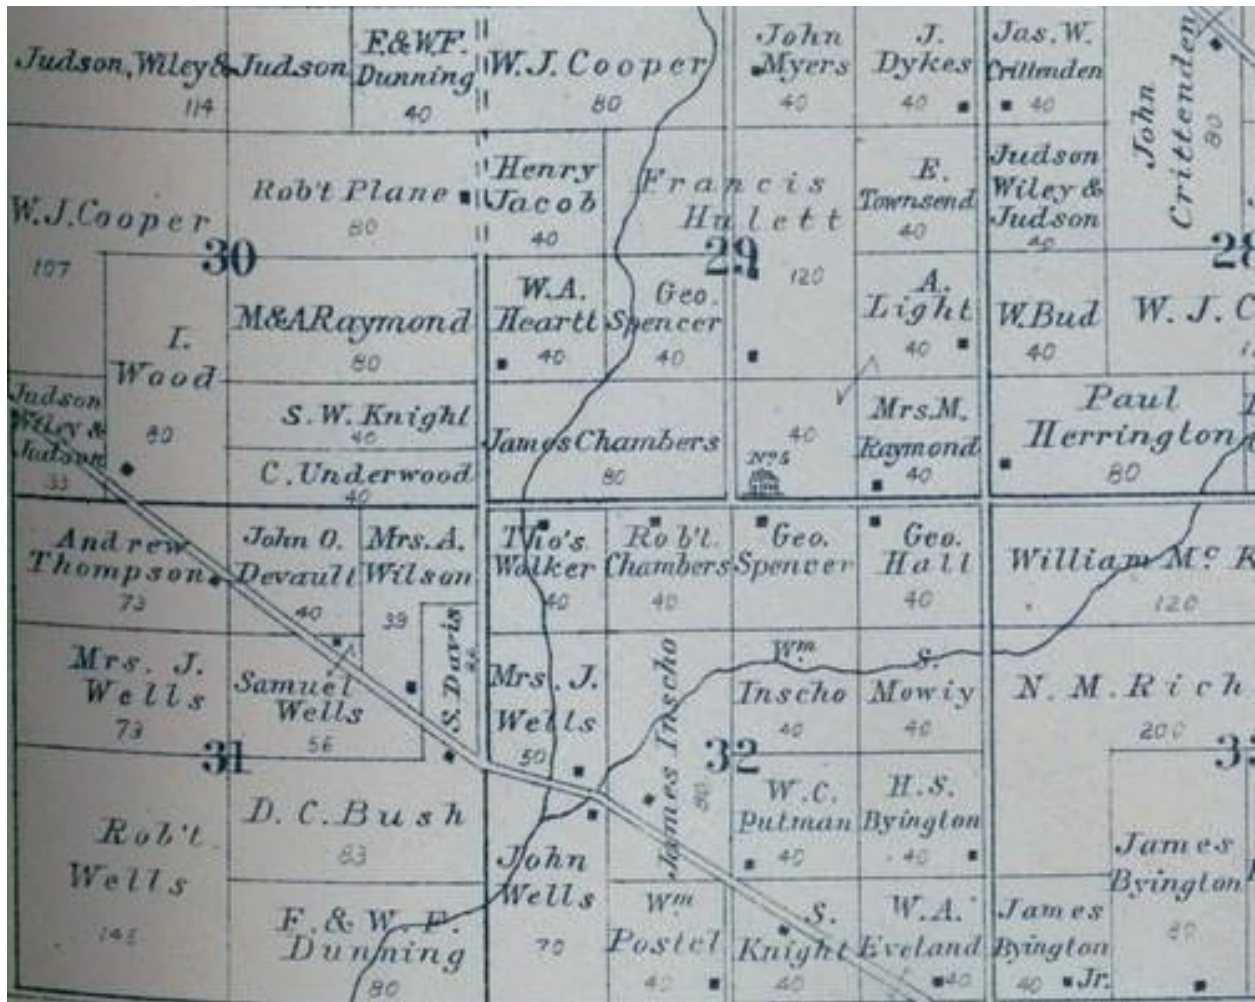 Judson, Wiley & Judson
114
F. & W.F.
Dunning
40
W. J. Cooper
80
John
Myers
40
J.
Dykes
40
Jas. W.
Crittenden
40
John
Crittenden
80
W. J. Cooper
107
Rob't Plane
80
Henry
Jacob
40
Francis
Hulett
120
E.
Townsend
40
Judson
Wiley &
Judson
40
30
29
28
I.
Wood
80
M & A Raymond
80
W. A.
Heartt
40
Geo.
Spencer
40
A.
Light
40
W. Bud
40
W. J. C
Judson
Wiley &
Judson
33
S. W. Knight
40
C. Underwood
40
James Chambers
80
40
No. 5
Mrs. M.
Raymond
40
Paul
Herrington
80
Andrew
Thompson
73
John O.
Devault
40
Mrs. A.
Wilson
39
Tho's
Walker
40
Rob't.
Chambers
40
Geo.
Spencer
Geo.
Hall
40
William Mc R
120
Mrs. J.
Wells
73
Samuel
Wells
56
S. Davis
Mrs. J.
Wells
50
James Inscho
80
Wm
Inscho
40
S.
Mowiy
40
N. M. Rich
200
31
32
33
Rob't.
Wells
D. C. Bush
83
John
Wells
70
W. C.
Putman
40
H. S.
Byington
40
James
Byington
80
F. & W. F.
Dunning
80
Wm
Postel
40
S.
Knight
40
W. A.
Eveland
40
James
Byington
40 Jr.